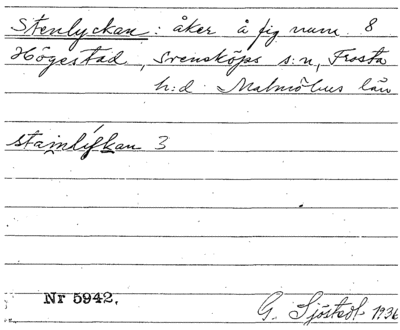 Stenlyckan: åker å fig num. 8
Högestad, Svensköps s:n, Frosta
h:d. Malmöhus län
stainlýkan 3
Nr 5942.
G. Sjöstedt 1936